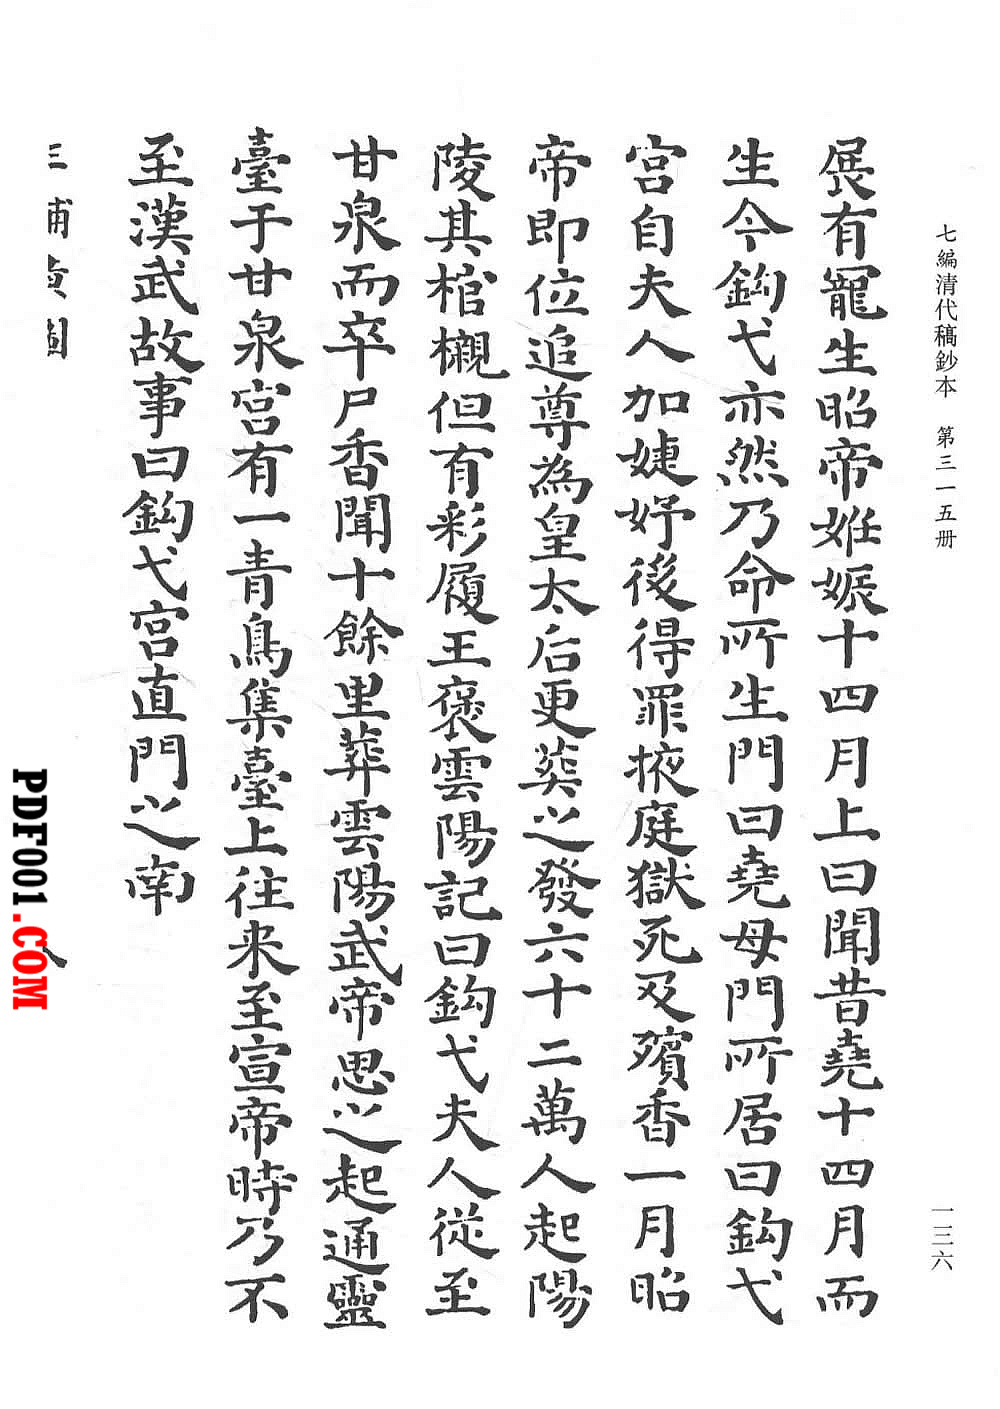 七編清代稿鈔本　第三一五册
一三六
展有寵生昭帝姙娠十四月上曰聞昔堯十四月而
生今鈎弋亦然乃命所生門曰堯母門所居曰鈎弋
宮自夫人加婕妤後得罪掖庭獄死及殯香一月昭
帝即位追尊為皇太后更葬之發六十二萬人起陽
陵其棺櫬但有彩履王褒雲陽記曰鈎弋夫人從至
甘泉而卒尸香聞十餘里葬雲陽武帝思之起通靈
臺于甘泉宮有一青鳥集臺上往来至宣帝時乃不
至漢武故事曰鈎弋宮直門之南
三輔黃圖
PDF001.COM